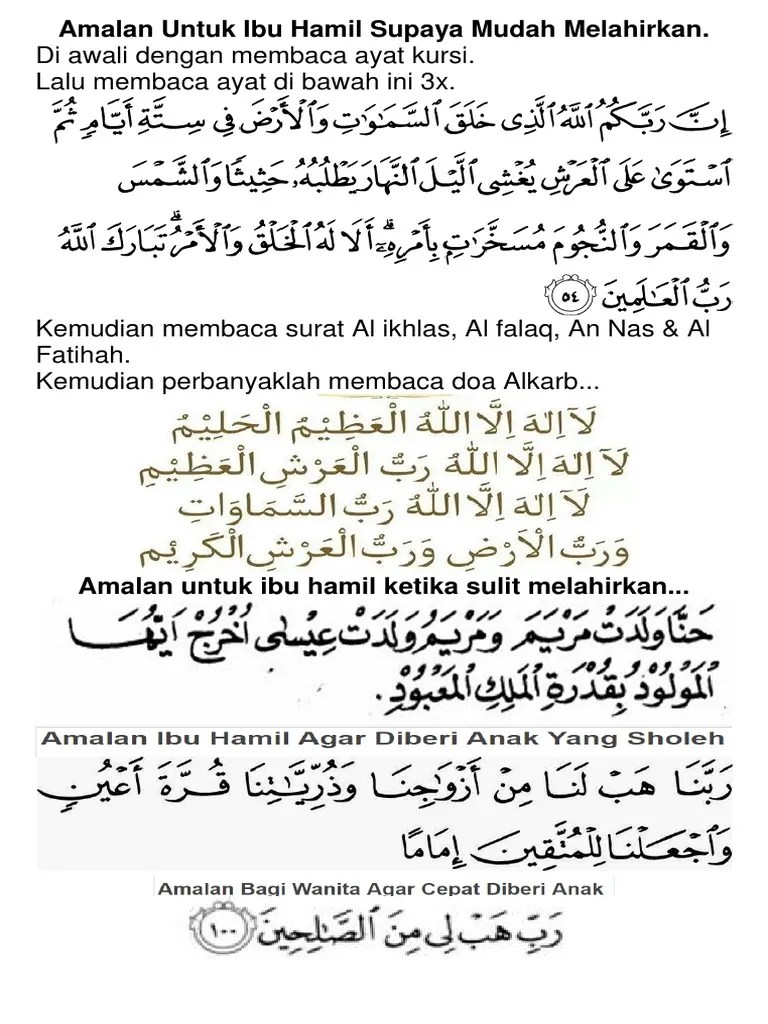 Amalan Untuk Ibu Hamil Supaya Mudah Melahirkan.
Di awali dengan membaca ayat kursi.
Lalu membaca ayat di bawah ini 3x.
إِنَّ رَبَّكُمُ ٱللَّهُ ٱلَّذِى خَلَقَ ٱلسَّمَٰوَٰتِ وَٱلْأَرْضَ فِى سِتَّةِ أَيَّامٍ ثُمَّ
ٱسْتَوَىٰ عَلَى ٱلْعَرْشِ يُغْشِى ٱلَّيْلَ ٱلنَّهَارَ يَطْلُبُهُۥ حَثِيثًا وَٱلشَّمْسَ
وَٱلْقَمَرَ وَٱلنُّجُومَ مُسَخَّرَٰتٍۭ بِأَمْرِهِۦٓ ۗ أَلَا لَهُ ٱلْخَلْقُ وَٱلْأَمْرُ ۗ تَبَارَكَ ٱللَّهُ
رَبُّ ٱلْعَٰلَمِينَ ٥٤
Kemudian membaca surat Al ikhlas, Al falaq, An Nas & Al
Fatihah.
Kemudian perbanyaklah membaca doa Alkarb...
لَآ اِلٰهَ اِلَّا اللّٰهُ الْعَظِيْمُ الْحَلِيْمُ
لَآ اِلٰهَ اِلَّا اللّٰهُ رَبُّ الْعَرْشِ الْعَظِيْمِ
لَآ اِلٰهَ اِلَّا اللّٰهُ رَبُّ السَّمَاوَاتِ
وَرَبُّ الْاَرْضِ وَرَبُّ الْعَرْشِ الْكَرِيْمِ
Amalan untuk ibu hamil ketika sulit melahirkan...
حَنَّا وَلَدَتْ مَرْيَمَ وَمَرْيَمُ وَلَدَتْ عِيْسٰى اُخْرُجْ اَيُّهَا
الْمَوْلُوْدُ بِقُدْرَةِ الْمَلِكِ الْمَعْبُوْدِ.
Amalan Ibu Hamil Agar Diberi Anak Yang Sholeh
رَبَّنَا هَبْ لَنَا مِنْ أَزْوَاجِنَا وَذُرِّيَّٰتِنَا قُرَّةَ أَعْيُنٍ
وَٱجْعَلْنَا لِلْمُتَّقِينَ إِمَامًا
Amalan Bagi Wanita Agar Cepat Diberi Anak
رَبِّ هَبْ لِى مِنَ ٱلصَّٰلِحِينَ ١٠٠